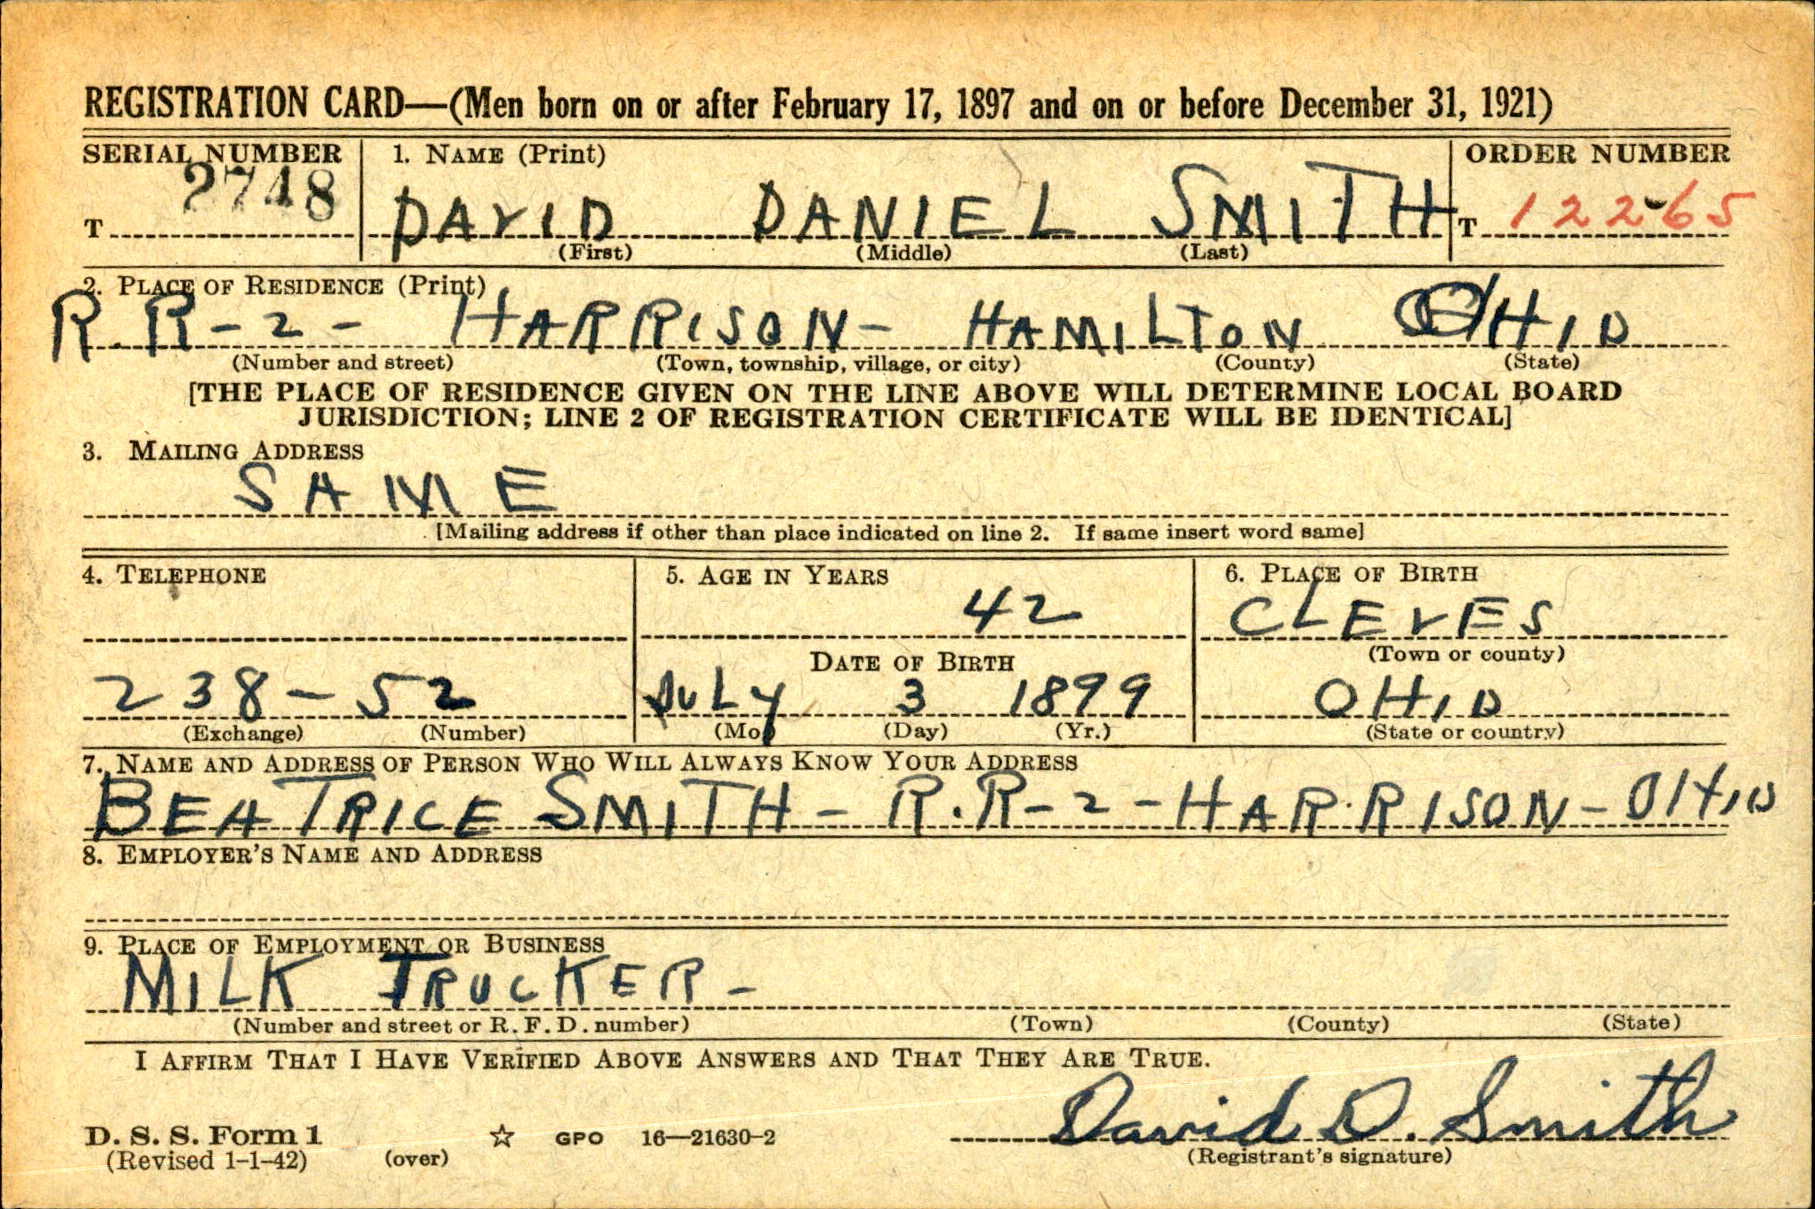 REGISTRATION CARD—(Men born on or after February 17, 1897 and on or before December 31, 1921)
SERIAL NUMBER 1. NAME (Print) ORDER NUMBER
2748
T DAVID DANIEL SMITH T 12265
(First) (Middle) (Last)
2. PLACE OF RESIDENCE (Print)
R.R-2- HARRISON- HAMILTON OHIO
(Number and street) (Town, township, village, or city) (County) (State)
[THE PLACE OF RESIDENCE GIVEN ON THE LINE ABOVE WILL DETERMINE LOCAL BOARD
JURISDICTION; LINE 2 OF REGISTRATION CERTIFICATE WILL BE IDENTICAL]
3. MAILING ADDRESS
SAME
[Mailing address if other than place indicated on line 2. If same insert word same]
4. TELEPHONE 5. AGE IN YEARS 6. PLACE OF BIRTH
42 CLEVES
DATE OF BIRTH (Town or county)
238-52 JULY 3 1899 OHIO
(Exchange) (Number) (Mo.) (Day) (Yr.) (State or country)
7. NAME AND ADDRESS OF PERSON WHO WILL ALWAYS KNOW YOUR ADDRESS
BEATRICE SMITH- R.R-2-HARRISON-OHIO
8. EMPLOYER'S NAME AND ADDRESS
9. PLACE OF EMPLOYMENT OR BUSINESS
MILK TRUCKER-
(Number and street or R. F. D. number) (Town) (County) (State)
I AFFIRM THAT I HAVE VERIFIED ABOVE ANSWERS AND THAT THEY ARE TRUE.
David D. Smith
D. S. S. Form 1 ☆ GPO 16—21630-2
(Revised 1-1-42) (over) (Registrant's signature)